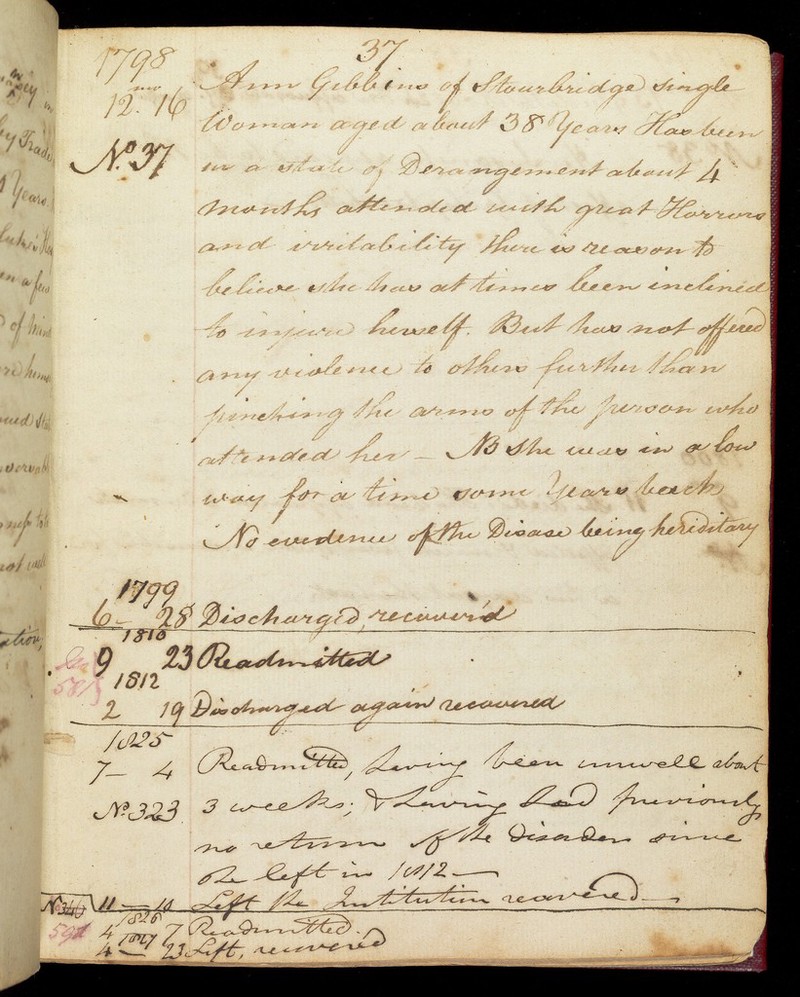 37
1798
mo
12. 16
No. 37
Ann Gibbins of Stourbridge single
Woman aged about 38 Years Has been
in a state of Derangement about 4
months attended with great Horrors
and irritability there is reason to
believe she has at times been inclined
to injure herself. But has not offered
any violence to others further than
pinching the arms of the person who
attended her - NB She was in a low
way for a time some Years back
No evidence of the Disease being hereditary
1799
6 - 28 Discharged, recover'd
1810
9 23 Readmitted
581
1812
2 19 Discharged again recovered
1825
7 - 4 Readmitted, having been unwell about
No. 323 3 weeks; & having had previously
no return of the disorder since
she left in 1812 -
11 - 10 Left the Institution recovered -
No. 346
1826
4 7 Readmitted.
591
1827
4 - 23 Left, recovered